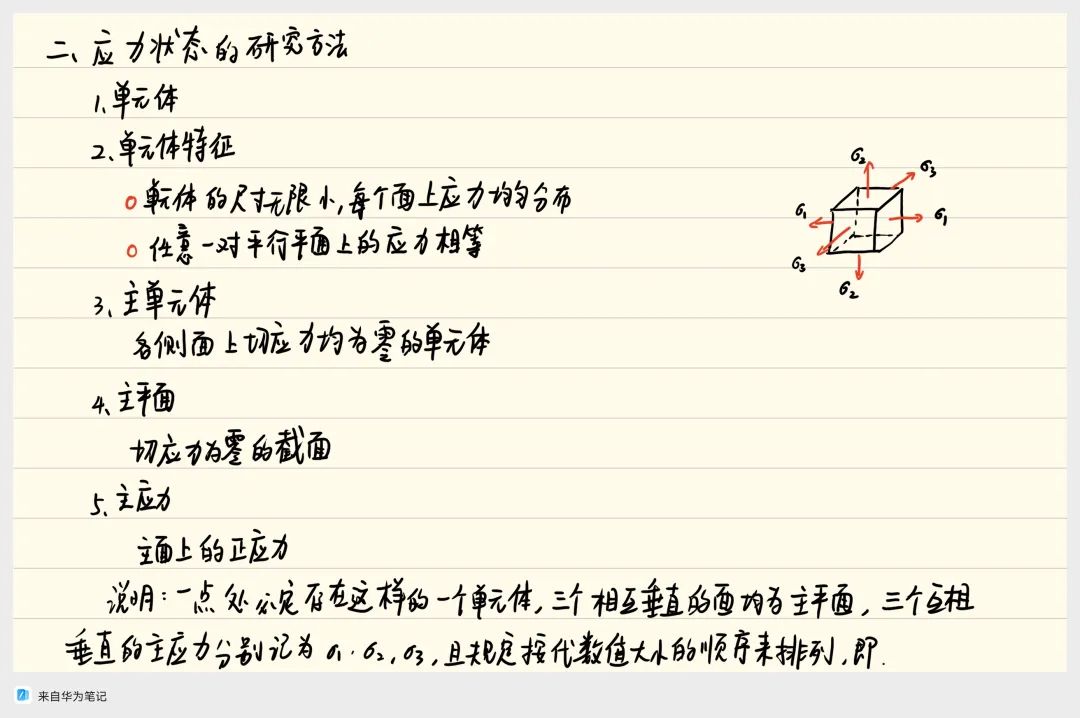 二、应力状态的研究方法
1、单元体
2、单元体特征
单元体的尺寸无限小,每个面上应力均匀分布
任意一对平行平面上的应力相等
σ2
σ3
σ1
σ1
σ3
σ2
3、主单元体
各侧面上切应力均为零的单元体
4、主平面
切应力为零的截面
5、主应力
主面上的正应力
说明:一点处必定存在这样的一个单元体,三个相互垂直的面均为主平面,三个互相
垂直的主应力分别记为σ1.σ2,σ3,且规定按代数值大小的顺序来排列,即.
来自华为笔记